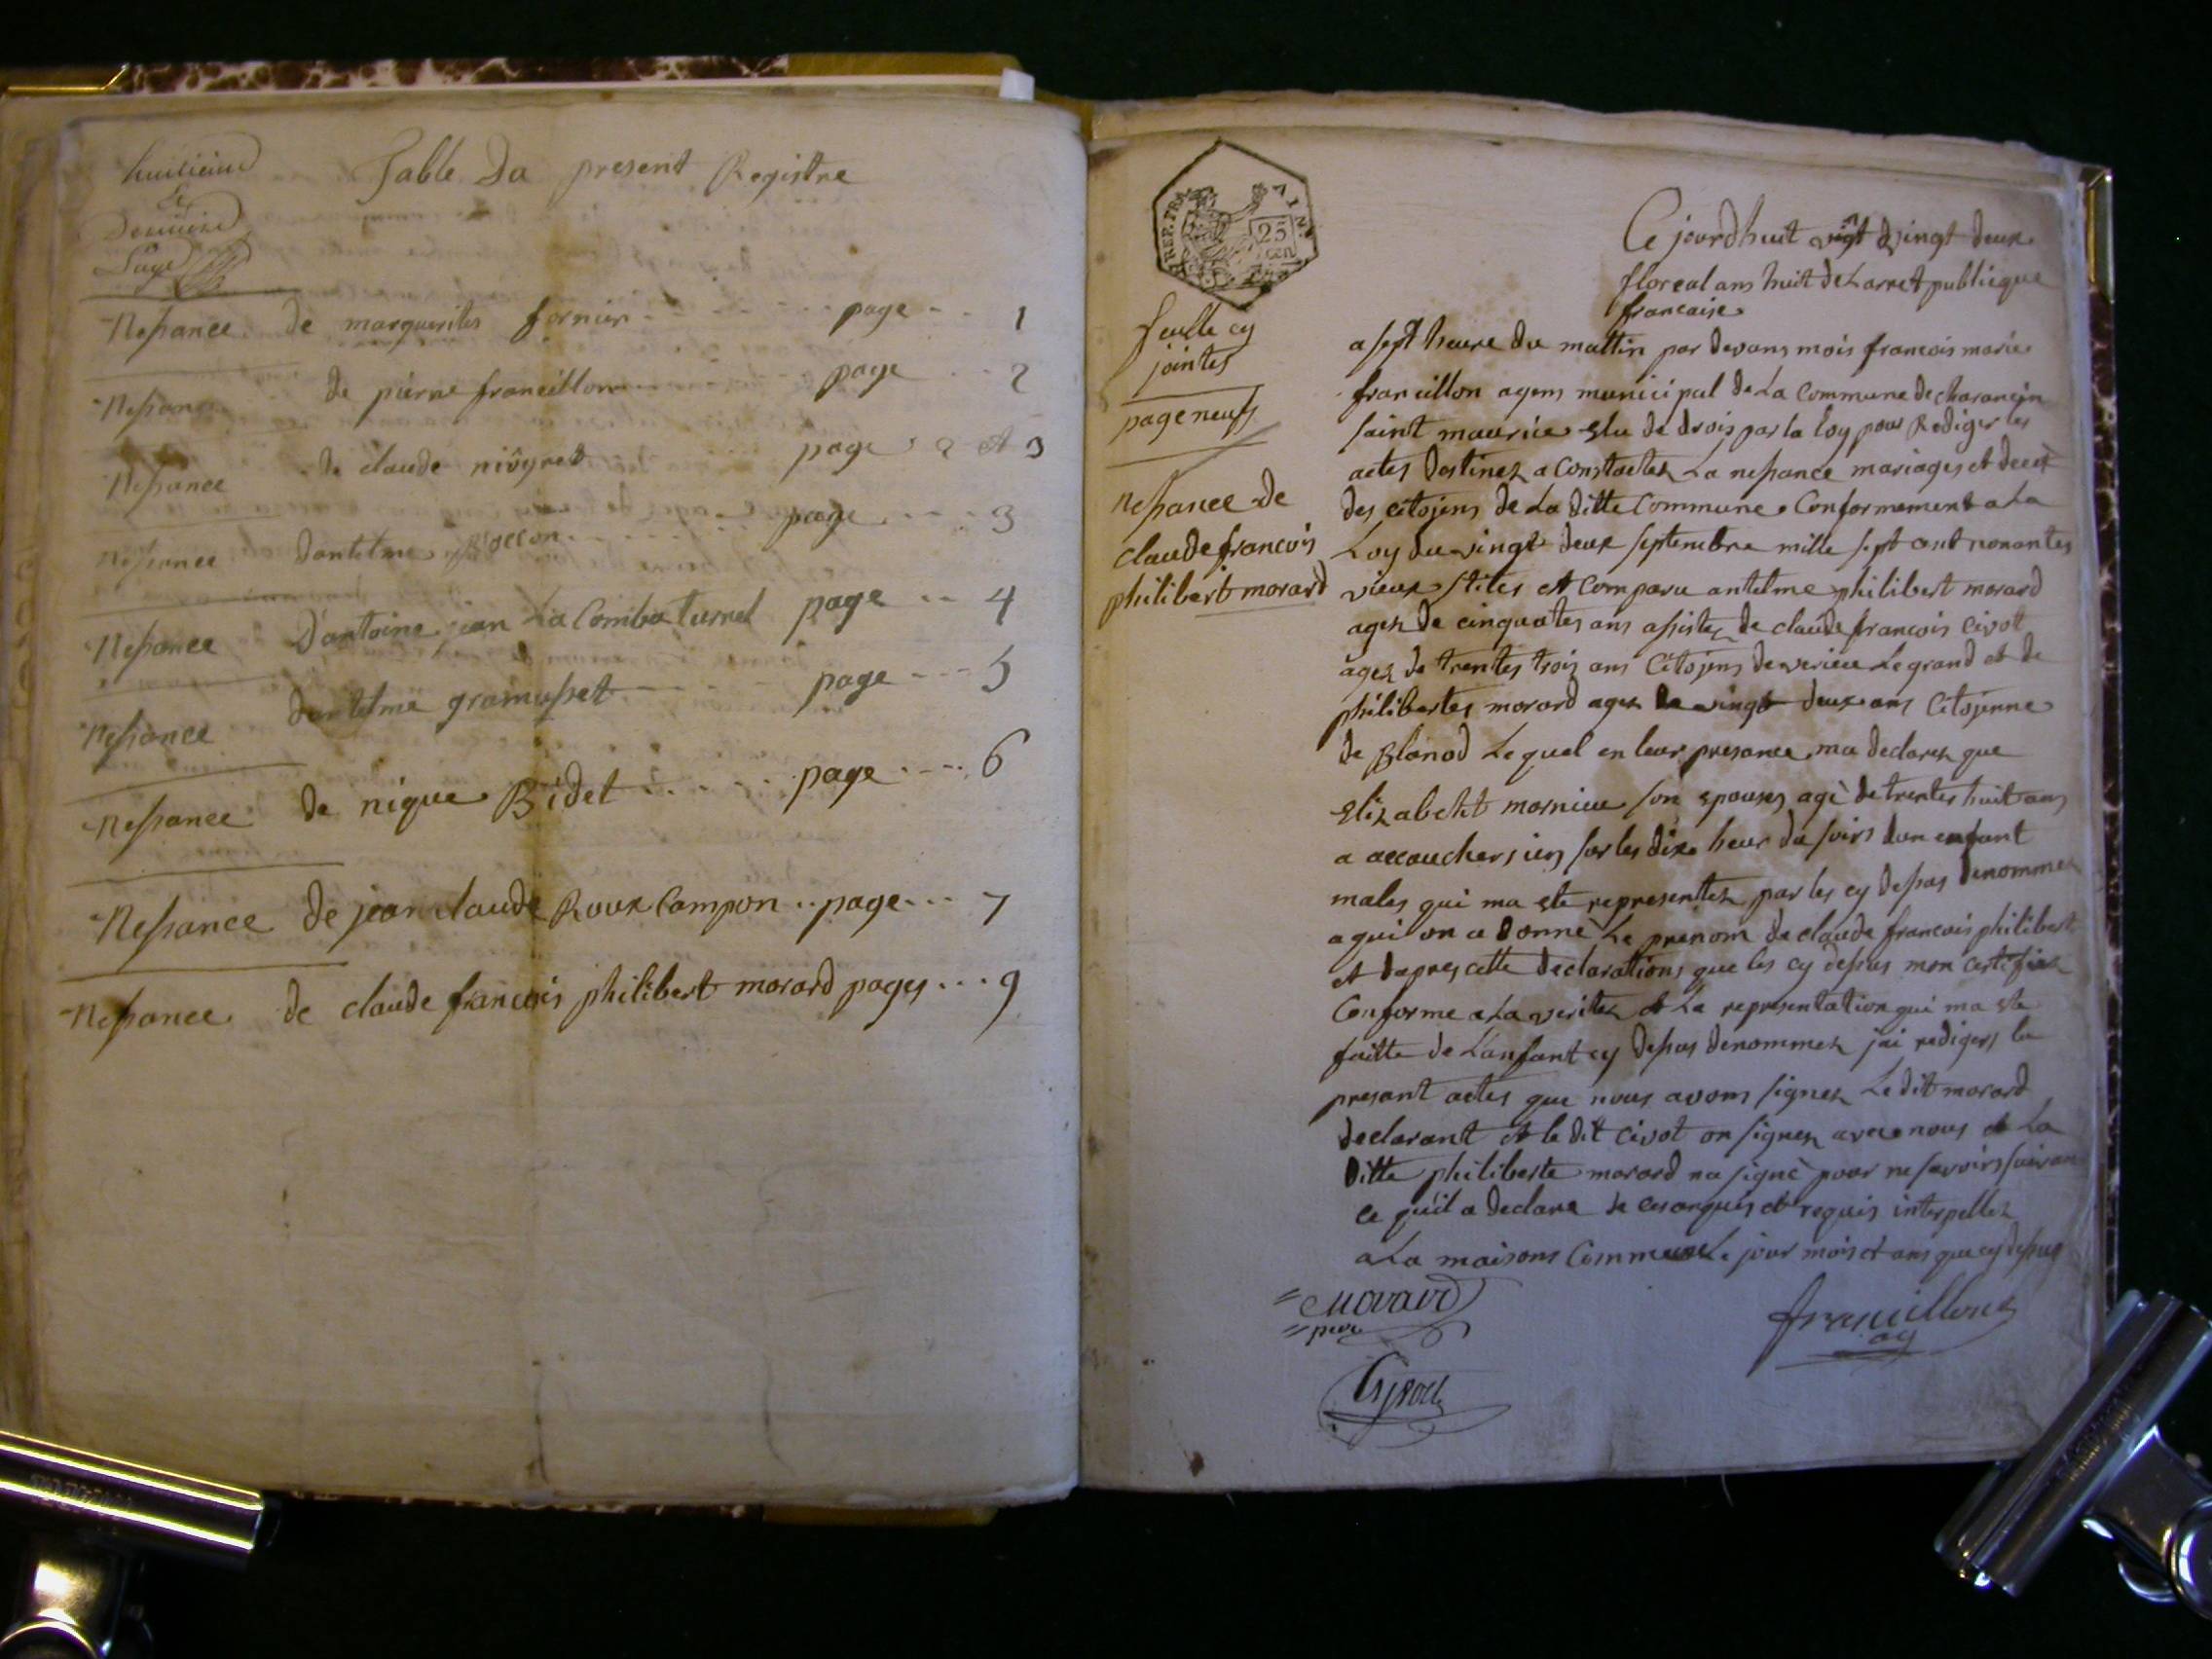 huitieme
Et
Derniere
Page
Table Du present Registre
Nessance de marguerites fornier page 1
Nessance de pierre francillon page 2
Nessance de claude niogret page 2 et 3
Nessance dantelme page 3
Nessance Dantoine jean La Combe turnel page 4
Nessance dantelme gramusset page 5
Nessance de nique Bidet page 6
Nessance de jean claude Roux Campon page 7
Nessance de claude francois philibert morard pages 9
REP. FRA AIN
25
cen
feulle cy
jointes
page neufs
Nessance de
claude francois
philibert morard
Ce jourdhuit vingt deux
floreal ans huit de Larret publicque
francaise
a sept heure du mattin par devans mois francois marie
francillon agens municipal de La Commune de charancin
saint maurice elu de drois par la loy pour Rediger les
actes destinez a Constactez La nessance mariages et decet
des citojens de La ditte Commune Conformement a La
Loy du vingt deux septembre mille sept cent nonantes
vieux stiles et Comparu antelme philibert morard
agez de cinquates ans assistez de claude francois civot
agez de trentes trois ans Citojens de verieu Le grand et de
philibertes morard agez de vingt deux ans Citojenne
de Blanod Le quel en leur presance ma declarez que
Elizabeht mornieu son epouses agè de trentes huit ans
a accouchers iers sur les dixe heur du soirs dun enfant
males qui ma ete representez par les cy dessas denommez
a qui on a donné Le prenom de claude francois philibert
et dapres cette declarations que les cy dessus mon certifiez
Conforme a La veritez et La representation qui ma ete
faitte de Lanfant cy dessas denommez jai redigers la
presant actes que nous avons signez Le dit morard
declarant et le dit civot on signez avec nous et La
ditte philiberte morard na signè pour ne savoirs suivan
ce qu'il a declare de ce requis interpellez
a La maisons Commune Le jour mois et ans que cy dessus
Morard
pere
francillon
ag